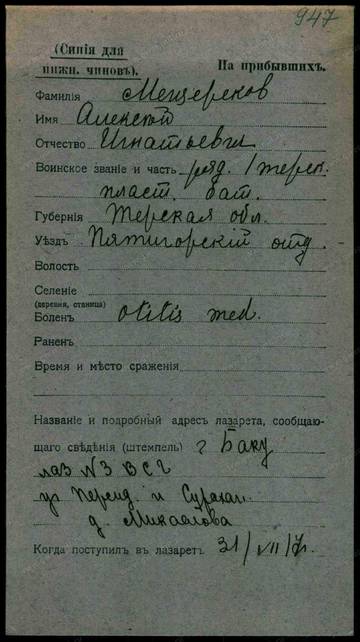 947
(Синія для
нижн. чиновъ).
На прибывшихъ.
Фамилія Мещеряков
Имя Алексей
Отчество Игнатьевич
Воинское званіе и часть ряд. 1 терск.
пласт. бат.
Губернія Терская обл.
Уѣздъ Пятигорскій отд.
Волость
Селеніе
(деревня, станица)
Боленъ otitis med.
Раненъ
Время и мѣсто сраженія
Названіе и подробный адресъ лазарета, сообщаю-
щаго свѣдѣнія (штемпель) г Баку
лаз N3 В С Г
уг Персид. и Сурахан.
д. Микаялова
Когда поступилъ въ лазаретъ 31/VII/17г.